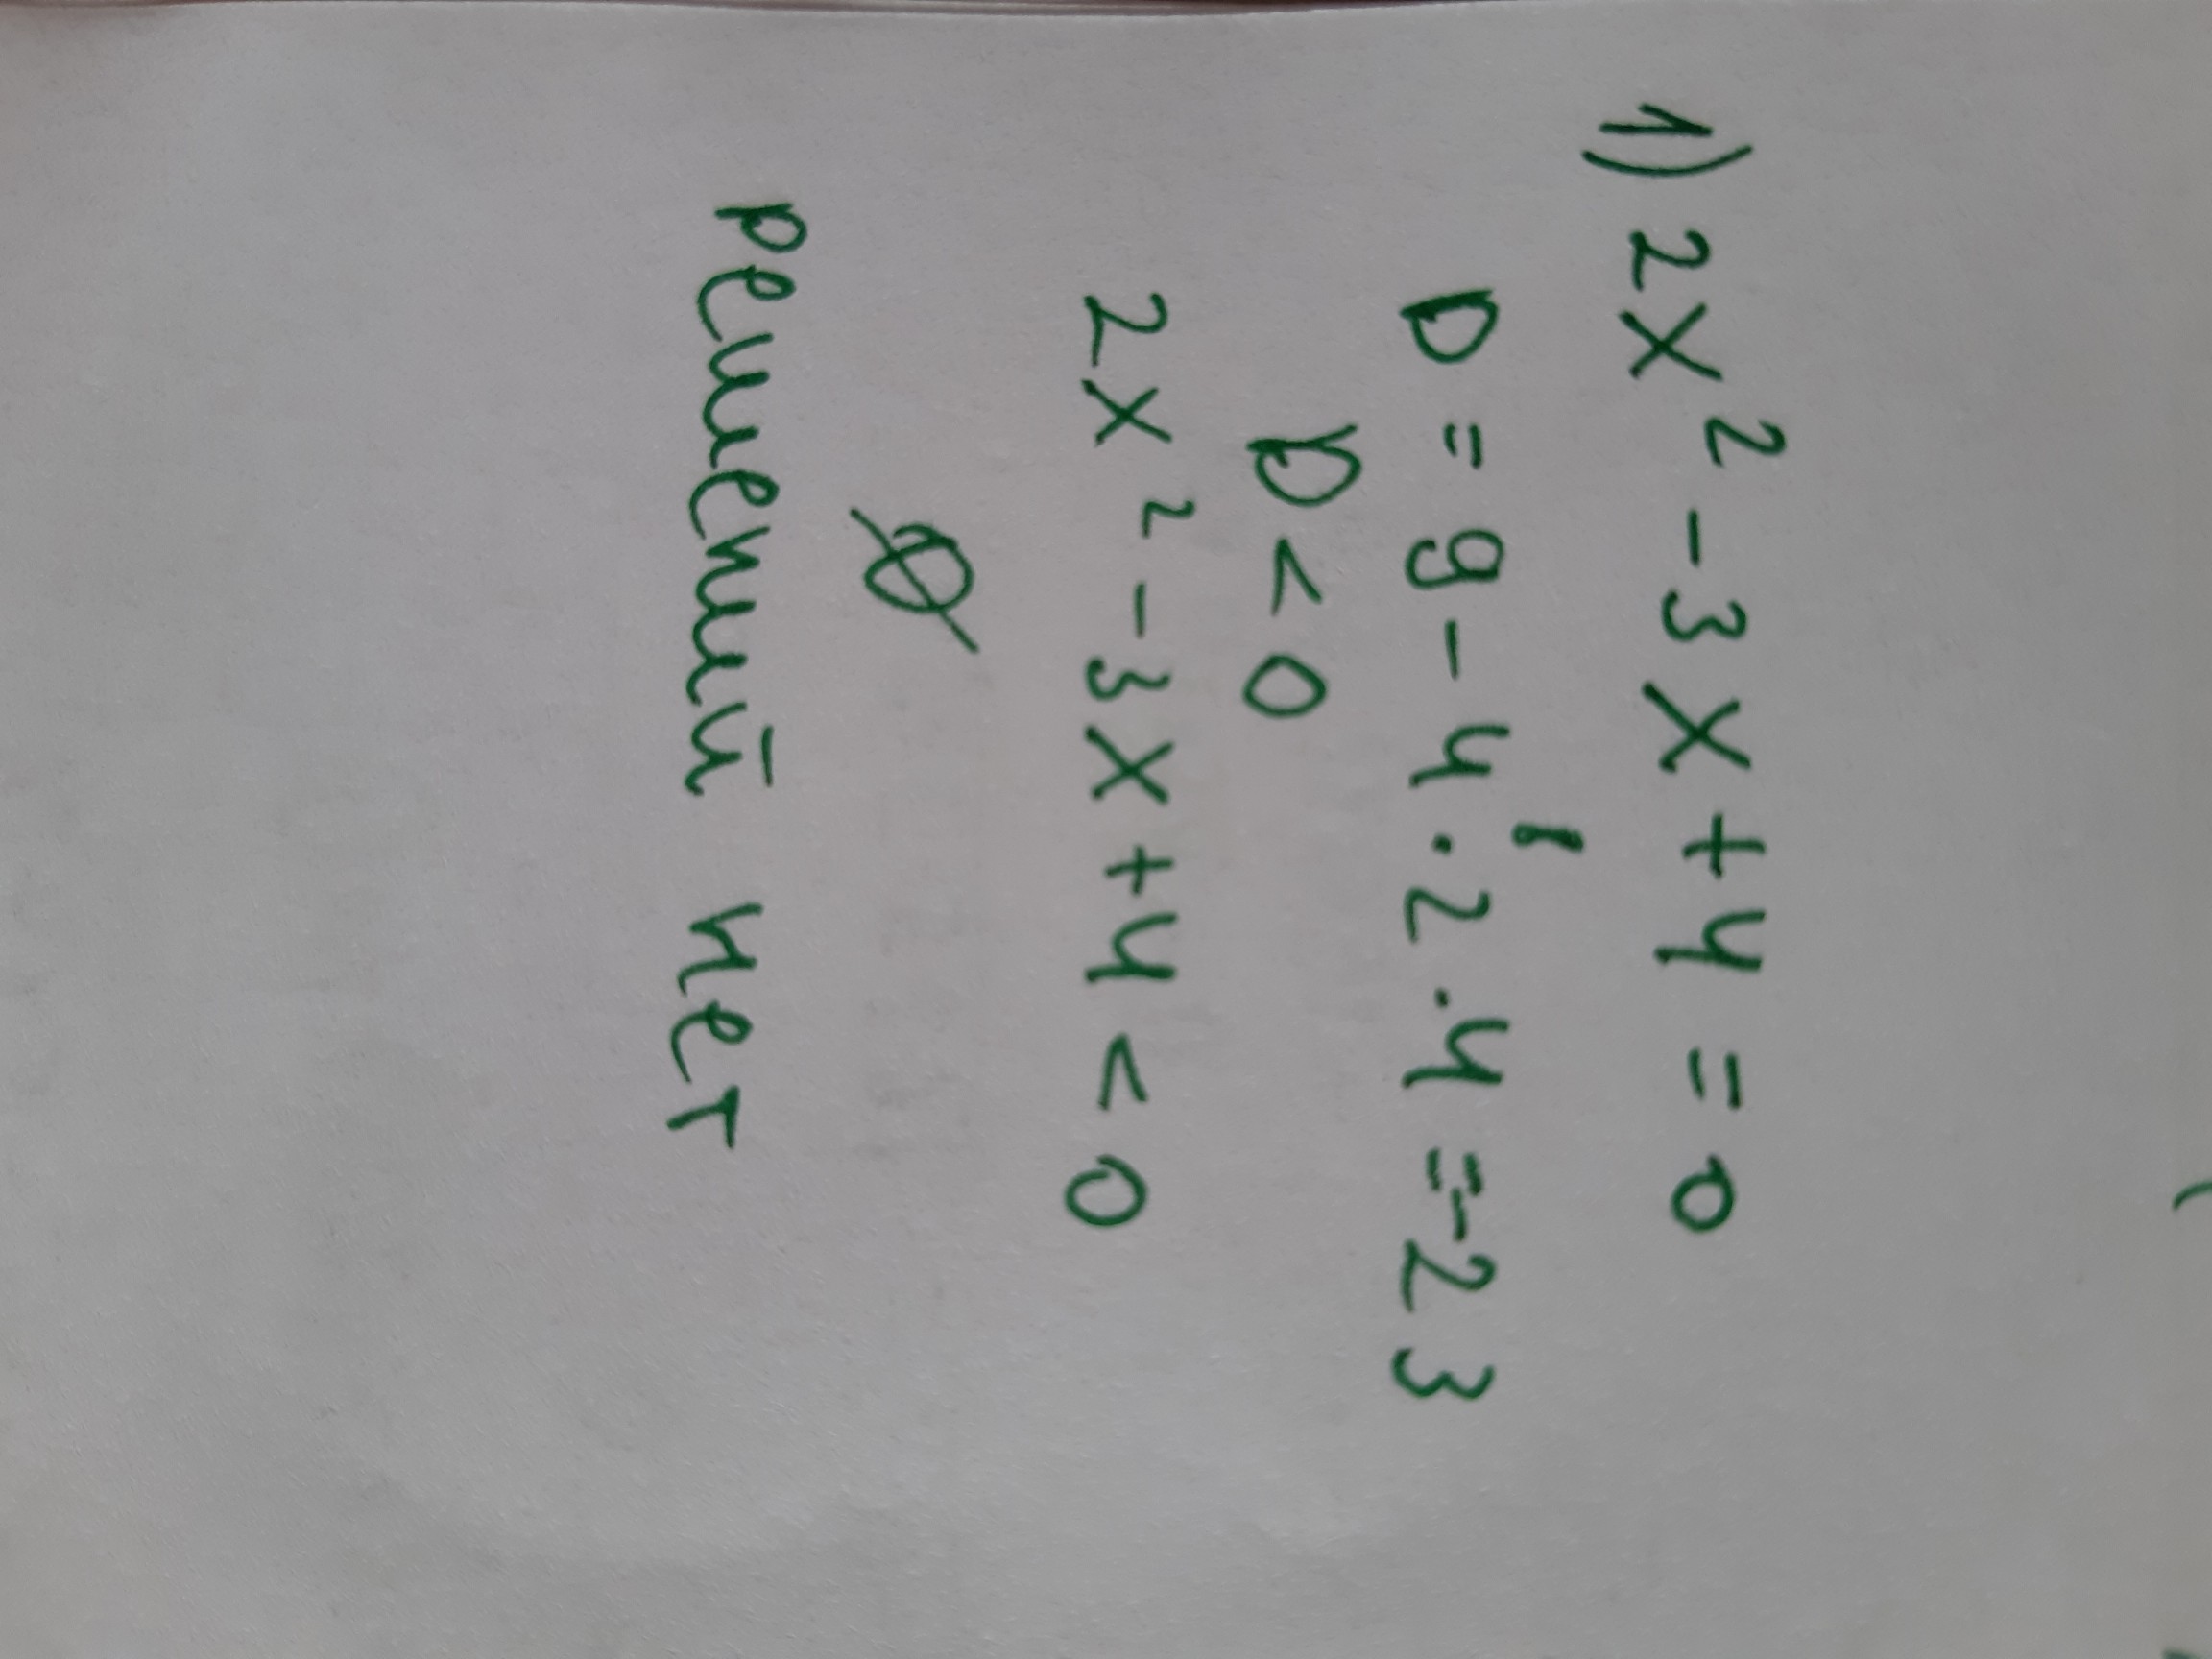 1) 2x² - 3x + 4 = 0
D = 9 - 4 · 2 · 4 = -23
D < 0
2x² - 3x + 4 < 0
∅
решений нет